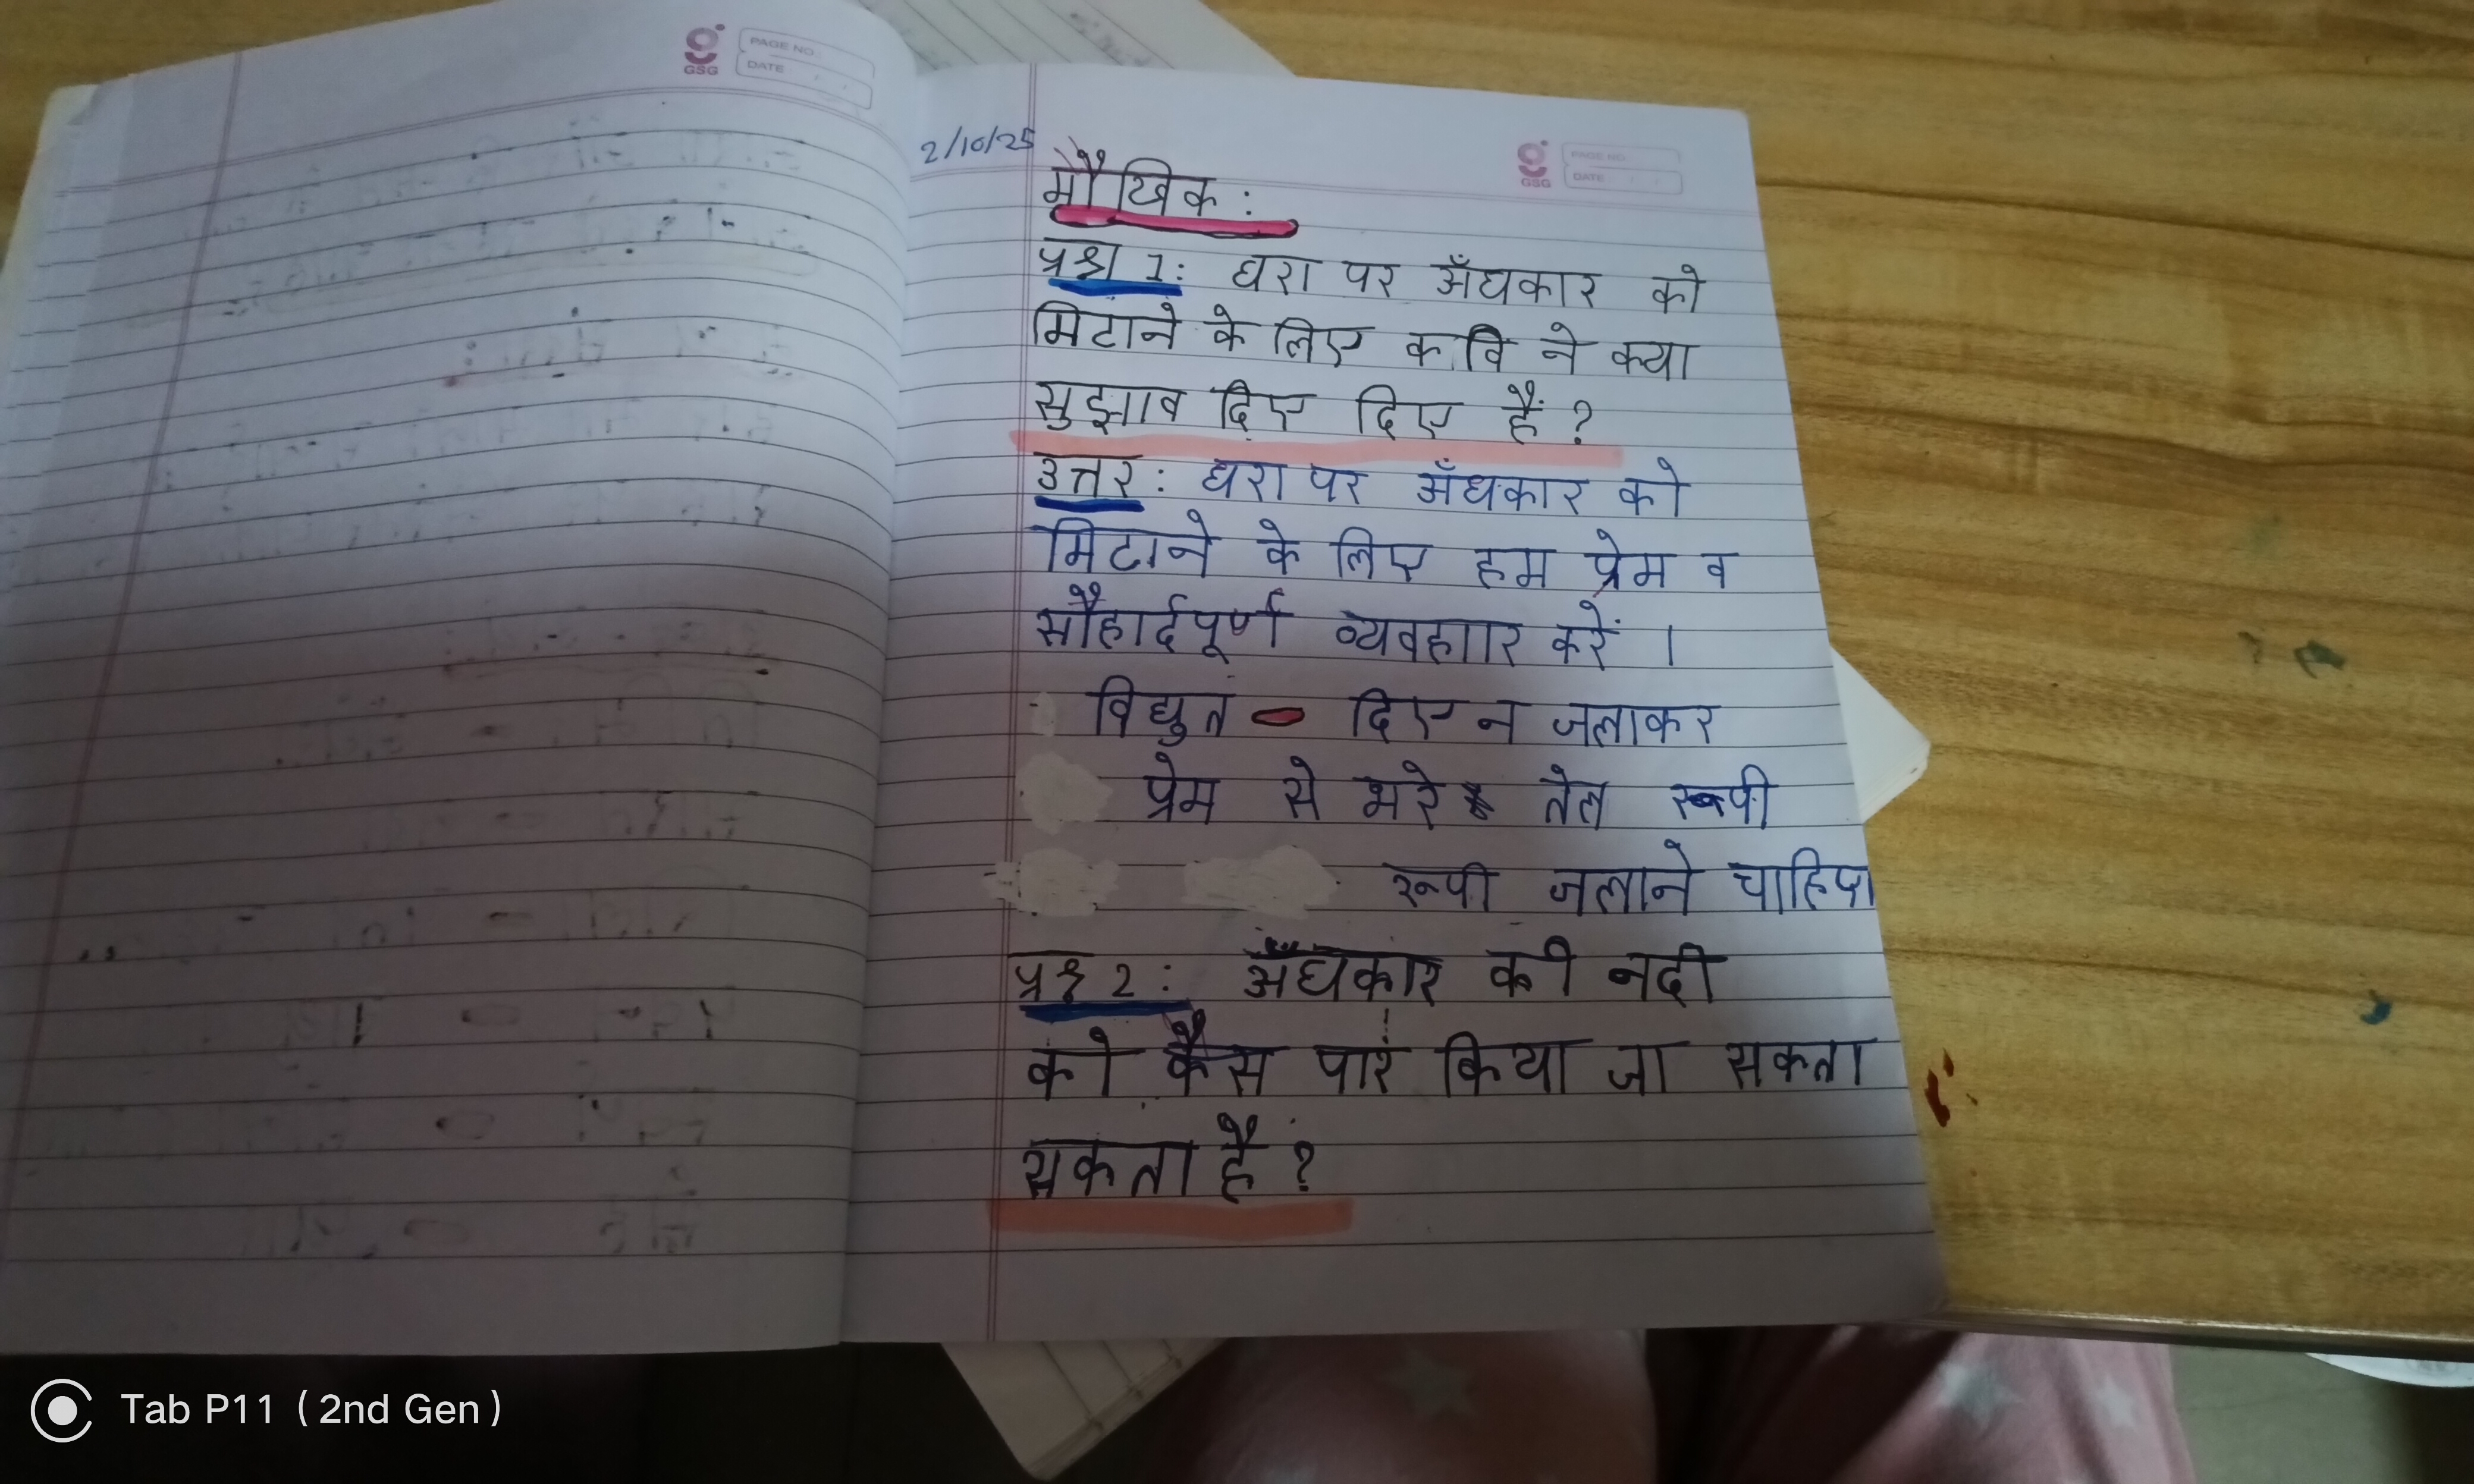 GSG
PAGE NO.
DATE
GSG
PAGE NO.
DATE
2/10/25
मौखिक :
प्रश्न 1: धरा पर अँधकार को
मिटाने के लिए कवि ने क्या
सुझाव दिए दिए हैं ?
उत्तर : धरा पर अँधकार को
मिटाने के लिए हम प्रेम व
सौहार्दपूर्ण व्यवहाार करें ।
विद्युत - दिए न जलाकर
प्रेम से भरे तेल रूपी
रूपी जलाने चाहिए।
प्रश्न 2 : अँधकार की नदी
को कैस पार किया जा सकता
सकता है ?
Tab P11 (2nd Gen)